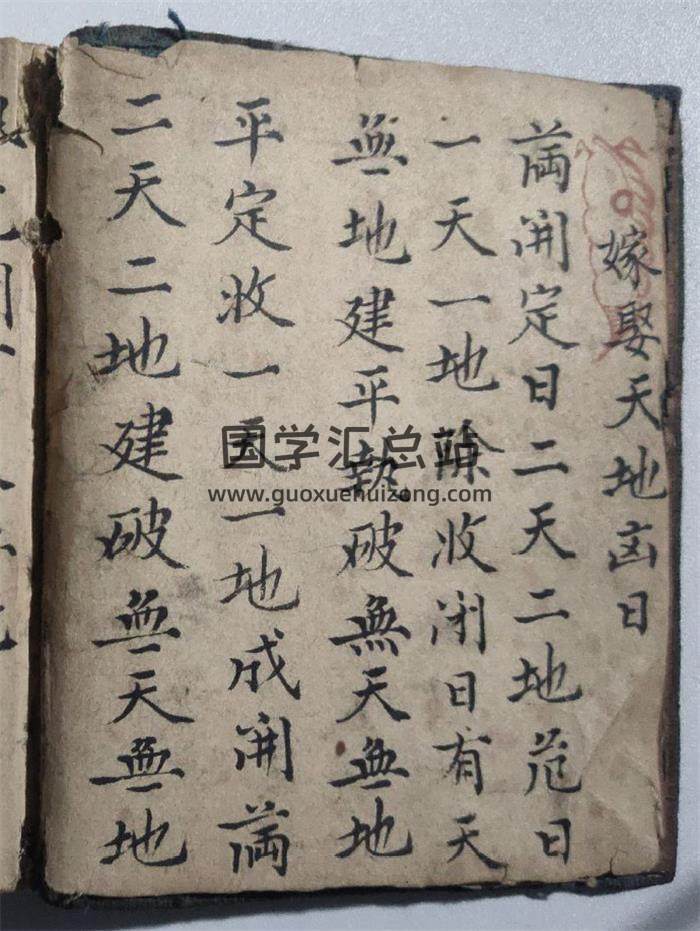 嫁娶天地凶日
㒼開定日二天二地危日
一天一地除收闭日有天
無地建平執破無天無地
平定收一天一地成開㒼
二天二地建破無天無地
国学汇总站
www.guoxuehuizong.com